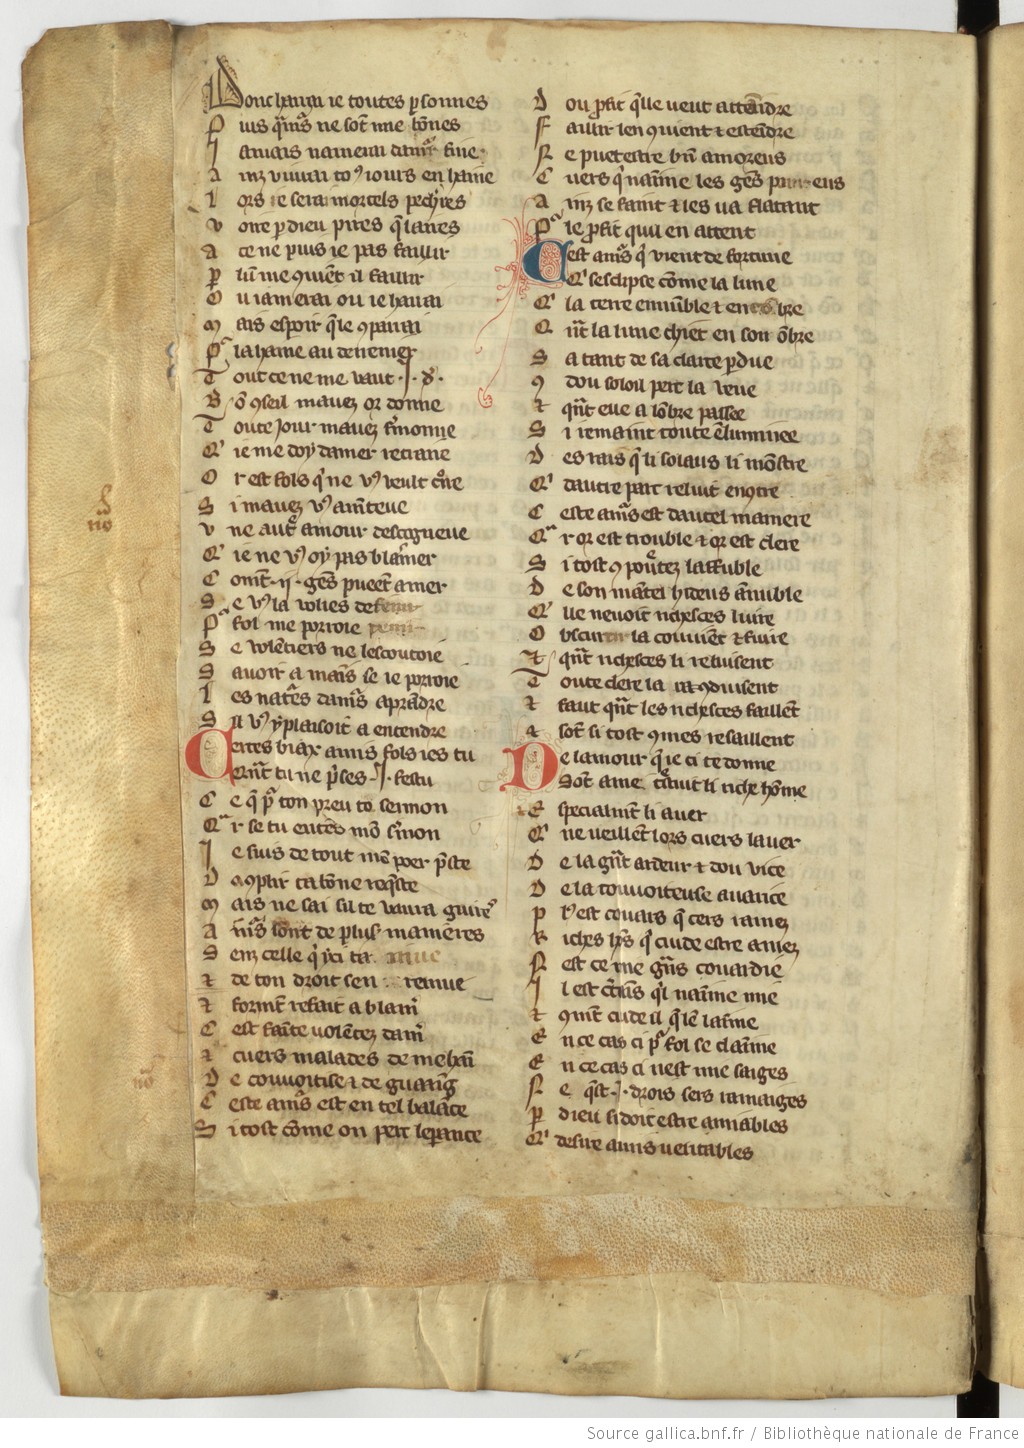 Donc harrai ie toutes psonnes
Puis q̃ lams̃ ne sot̃ mie bõnes
Jamais namerai damr̃ fine
Ainz viurai toꝰiours en haine
Lors ie serai mortels pechires
Voire p dieu pires q̃ larres
A ce ne puis ie pas faillir
P lun me ꝯuient il saillir
Ou iamerai ou ie harrai
Mais espoir q̃ le ꝯparrai
Pͣ la haine au derrenier
Tout ce ne me vaut .j. dr̃.
Bõ ꝯseil mauez or donne
Toute jour mauez s̃monne
Q' ie me doy damer recraire
Or est fols q' ne vꝰ veult cr̃re
Si mauez vꝰ am̃teue
Vne aut̃ amour descogneue
Q' ie ne vꝰ oy pas blas̃mer
Com̃t .ij. ges̃ pueẽt amer
Se vꝰ la volies def
Pͣ fol me porroie
Se volẽtiers ne lescoutoie
Sauoir a mais̃ se ie porroie
Les nates̃ damrs̃ aprãdre
Sil vꝰ y plaisoit a entendre
Certes biax amis fols ies tu
Qant̃ tu ne p̃ses .j. festu
Ce q̃ pͣ ton preu to sermon
Qͣr se tu entẽs mõ s̃mon
Je suis de tout mõ poer p̃ste
Dacõplir ta bõne req̃ste
Mais ne sai sil te vaura guireꝰ
Ams̃ sont de plusꝰ manieres
Senz celle q' y ci ta
⁊ de ton droit sen remue
⁊ formt̃ refait a blam̃
Cest faute volẽtez dam̃
⁊ cuers malades de mehai
De couuoitise ⁊ de guaring̃
Ceste ams̃ est en tel balãce
Si tost cõme on pert lesperance
Dou pfit q̃lle veut attẽdre
Faillir len ꝯuient ⁊ estẽdre
Ne puet estre bñ amoreus
Cuers q' naim̃e les ges̃ p eus
Ainz se faint ⁊ les va flatant
Pͣ le pfit quil en attent
Cest ams̃ q' vient de fortune
Q' sesclipse cõme la lune
Q' la terre ennuble ⁊ en bre
Qnt̃ la lune chiet en son õbre
Sa tant de sa clarte pdue
ꝯ dou soloil pert la veue
⁊ qñt elle a lõbre passee
Si reuient toute ẽluminee
Des rais q̃ li solaus li mõstre
Q' dautre part reluit encontre
Ceste ams̃ est dautel maniere
Qͣr or est trouble ⁊ or est clere
Si tost ꝯ pouꝛtez laffuble
De son mãtel hideus ãnuble
Q' lle ne uoit richesces luire
Obscurer la couuiẽt ⁊ fuire
⁊ qñt richesces li reluisent
Toute clere la ra ꝯduisent
⁊ faut qñt les richesces faillẽt
⁊ sot̃ si tost ꝯ mes resaillent
De lamour q̃ ie ci te donne
Sont ame tretuit li riche hõme
Especialmt̃ li auer
Q' ne veillẽt lors cuers lauer
De la gñt ardeur ⁊ dou vice
De la couuoiteuse auarice
Plꝰ est couars q̃ cers ramez
Riches hõs q' cuide estre amez
Nest ce me grñs couardie
Il est c̃tains q'l naim̃e mie
⁊ ꝯmt̃ cuide il q̃ len laim̃e
En ce cas ci pͣ fol se claim̃e
En ce cas ci nest mie saiges
Ne q̃st .j. drois sers ramaiges
P dieu si doit estre amiables
Q' desire amis ueritables
Source gallica.bnf.fr / Bibliothèque nationale de France